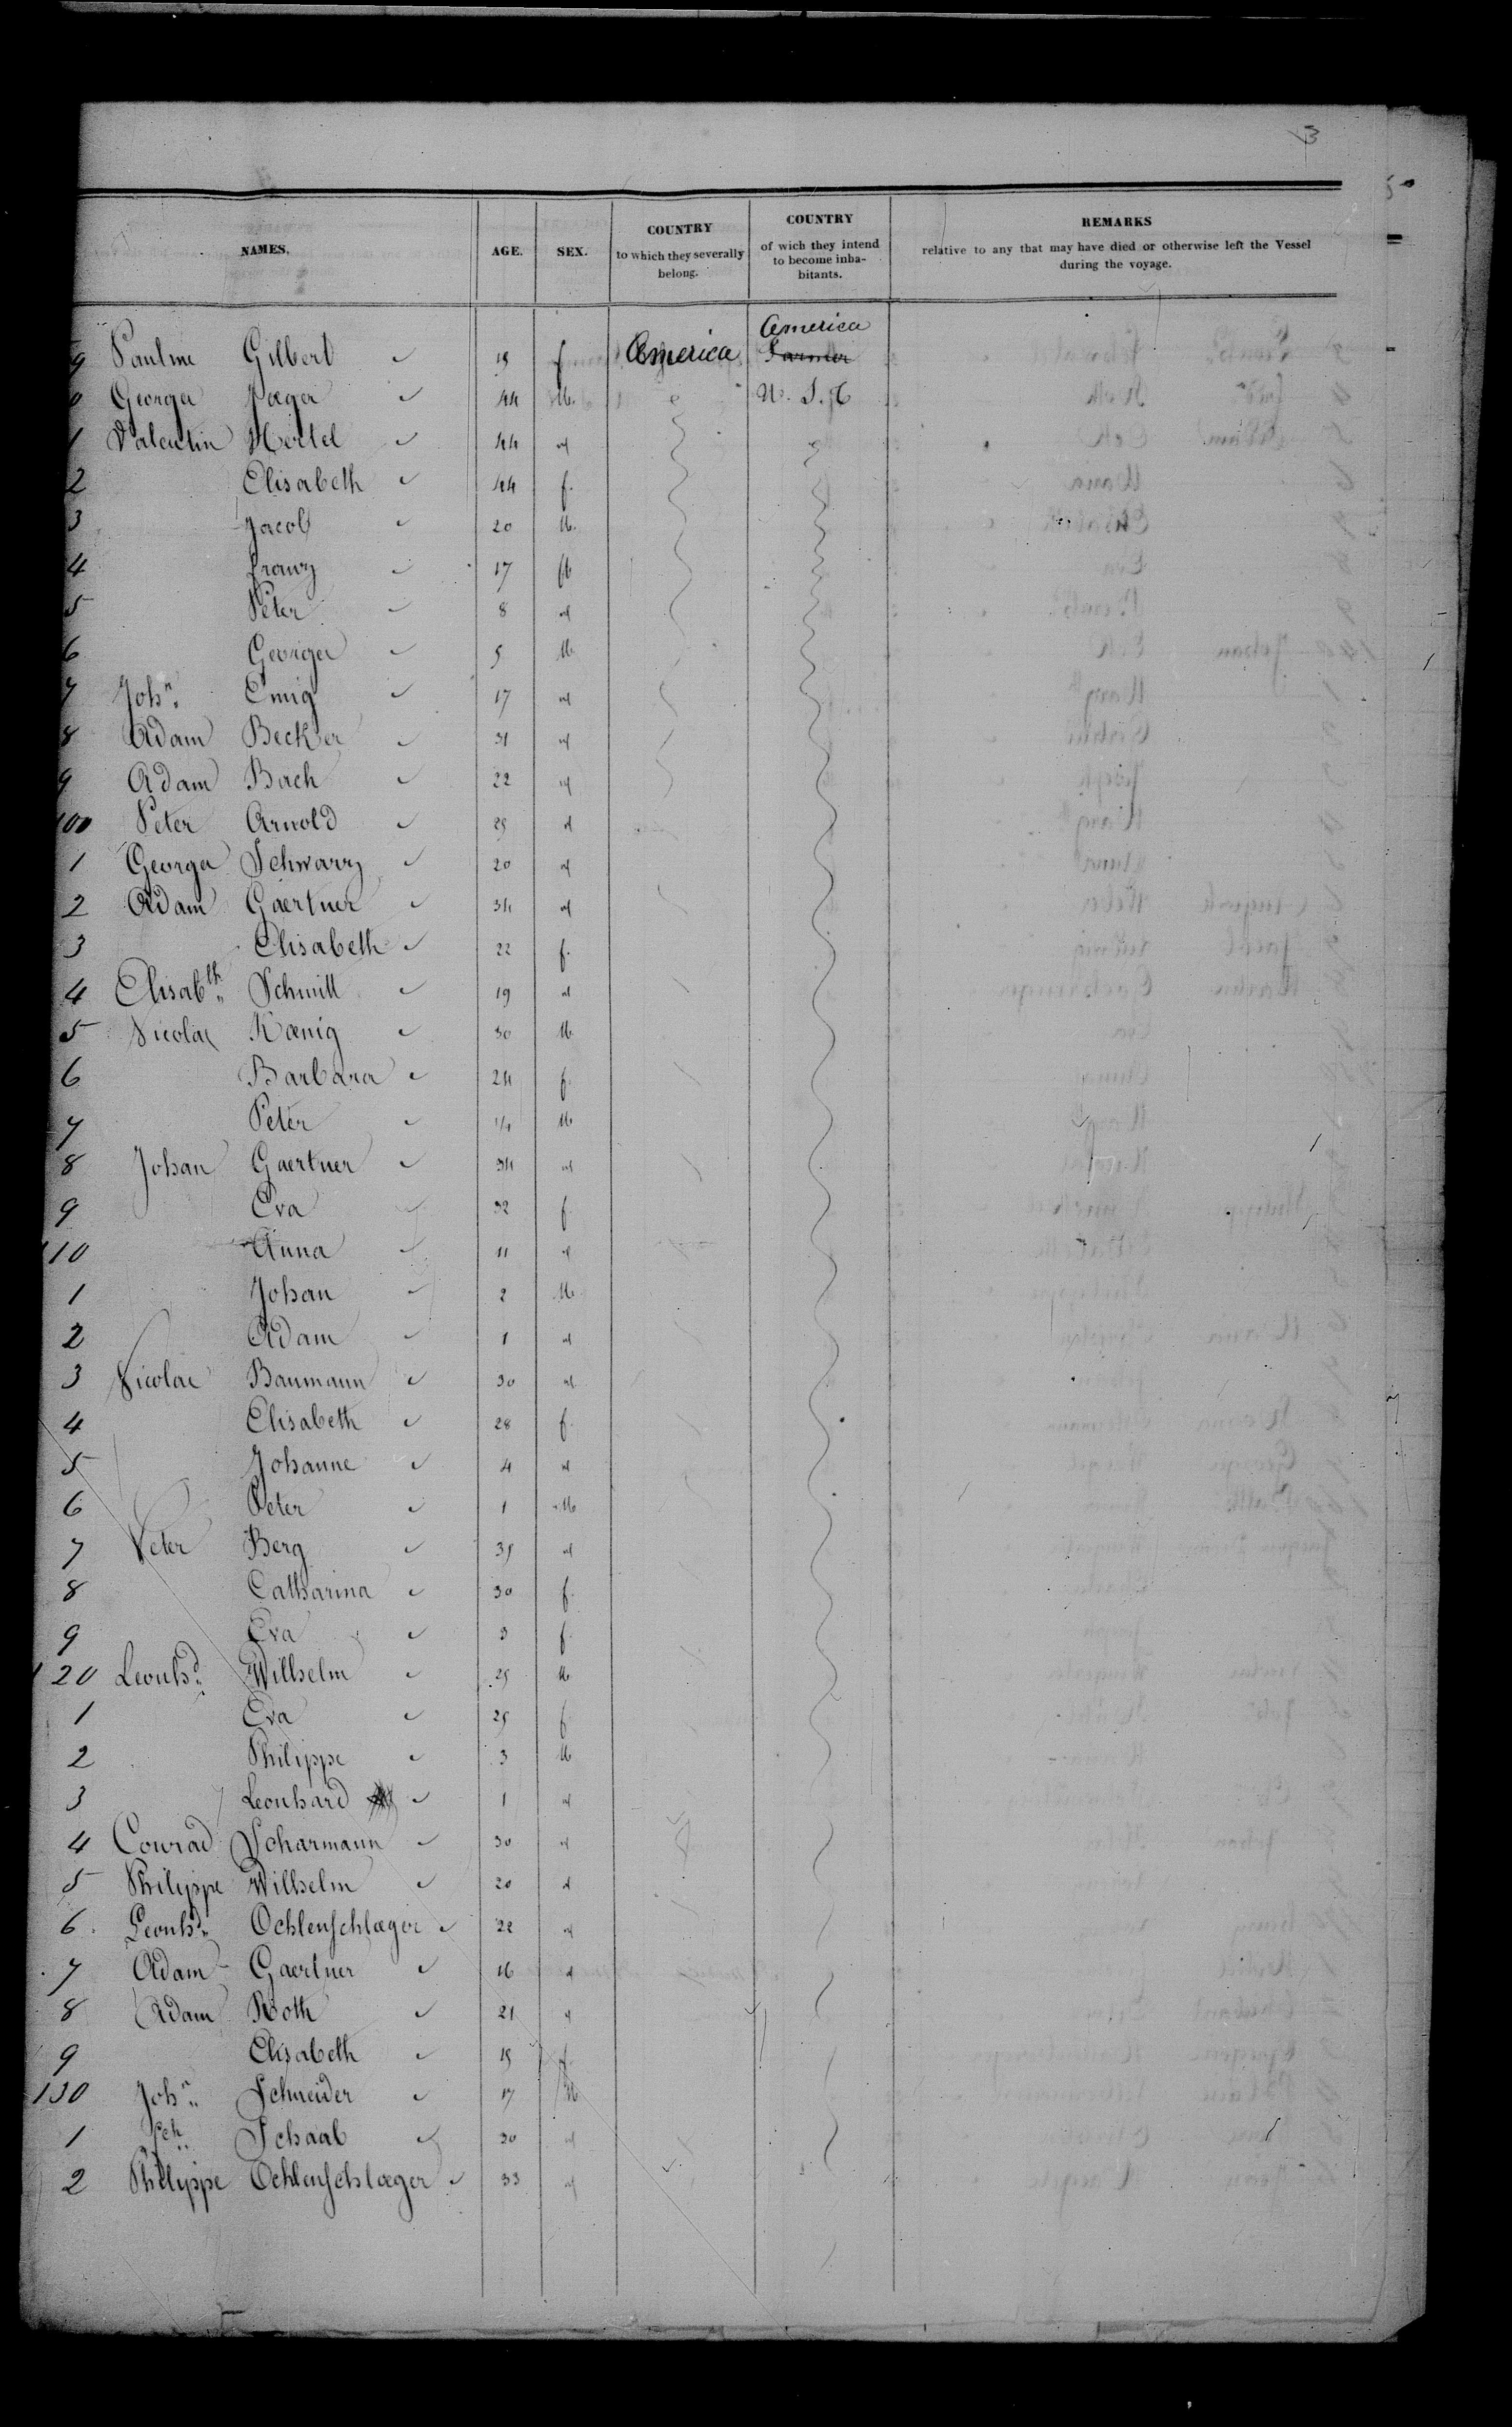 3
NAMES. AGE. SEX. COUNTRY to which they severally belong. COUNTRY of wich they intend to become inhabitants. REMARKS relative to any that may have died or otherwise left the Vessel during the voyage.
America
9 Pauline Gilbert 19 f America Farmer
0 George Jaeger 44 M. U. S. A
1 Valentin Hertel 44
2 Elisabeth 44 f.
3 Jacob 20 M.
4 Franz 17 M
5 Peter 8
6 George 5 M
7 Johⁿ. Emig 17
8 Adam Becker 31
9 Adam Bach 22
100 Peter Arnold 25
1 George Schwarz 20
2 Adam Gaertner 34
3 Elisabeth 22 f.
4 Elisabth. Schmitt 19
5 Nicolai Kœnig 30 M
6 Barbara 24 f.
7 Peter M
8 Johan Gaertner 34
9 Eva 32 f.
110 Anna 11
1 Johan 2 M
2 Adam 1
3 Nicolai Baumann 30
4 Elisabeth 28 f.
5 Johanne 4
6 Peter 1 M
7 Peter Berg 35
8 Catharina 30 f.
9 Eva 3 f.
120 Leonhd. Wilhelm 25 M
1 Eva 25 f
2 Philippe 3 M
3 Leonhard 1
4 Conrad Scharmann 30
5 Philippe Wilhelm 20
6 Leonhd. Oehlenschlæger 22
7 Adam Gaertner 16
8 Adam Roth 21
9 Elisabeth 19 f.
130 Johⁿ. Schneider 17 M
1 Schaab 30
2 Philippe Oehlenschlæger 33